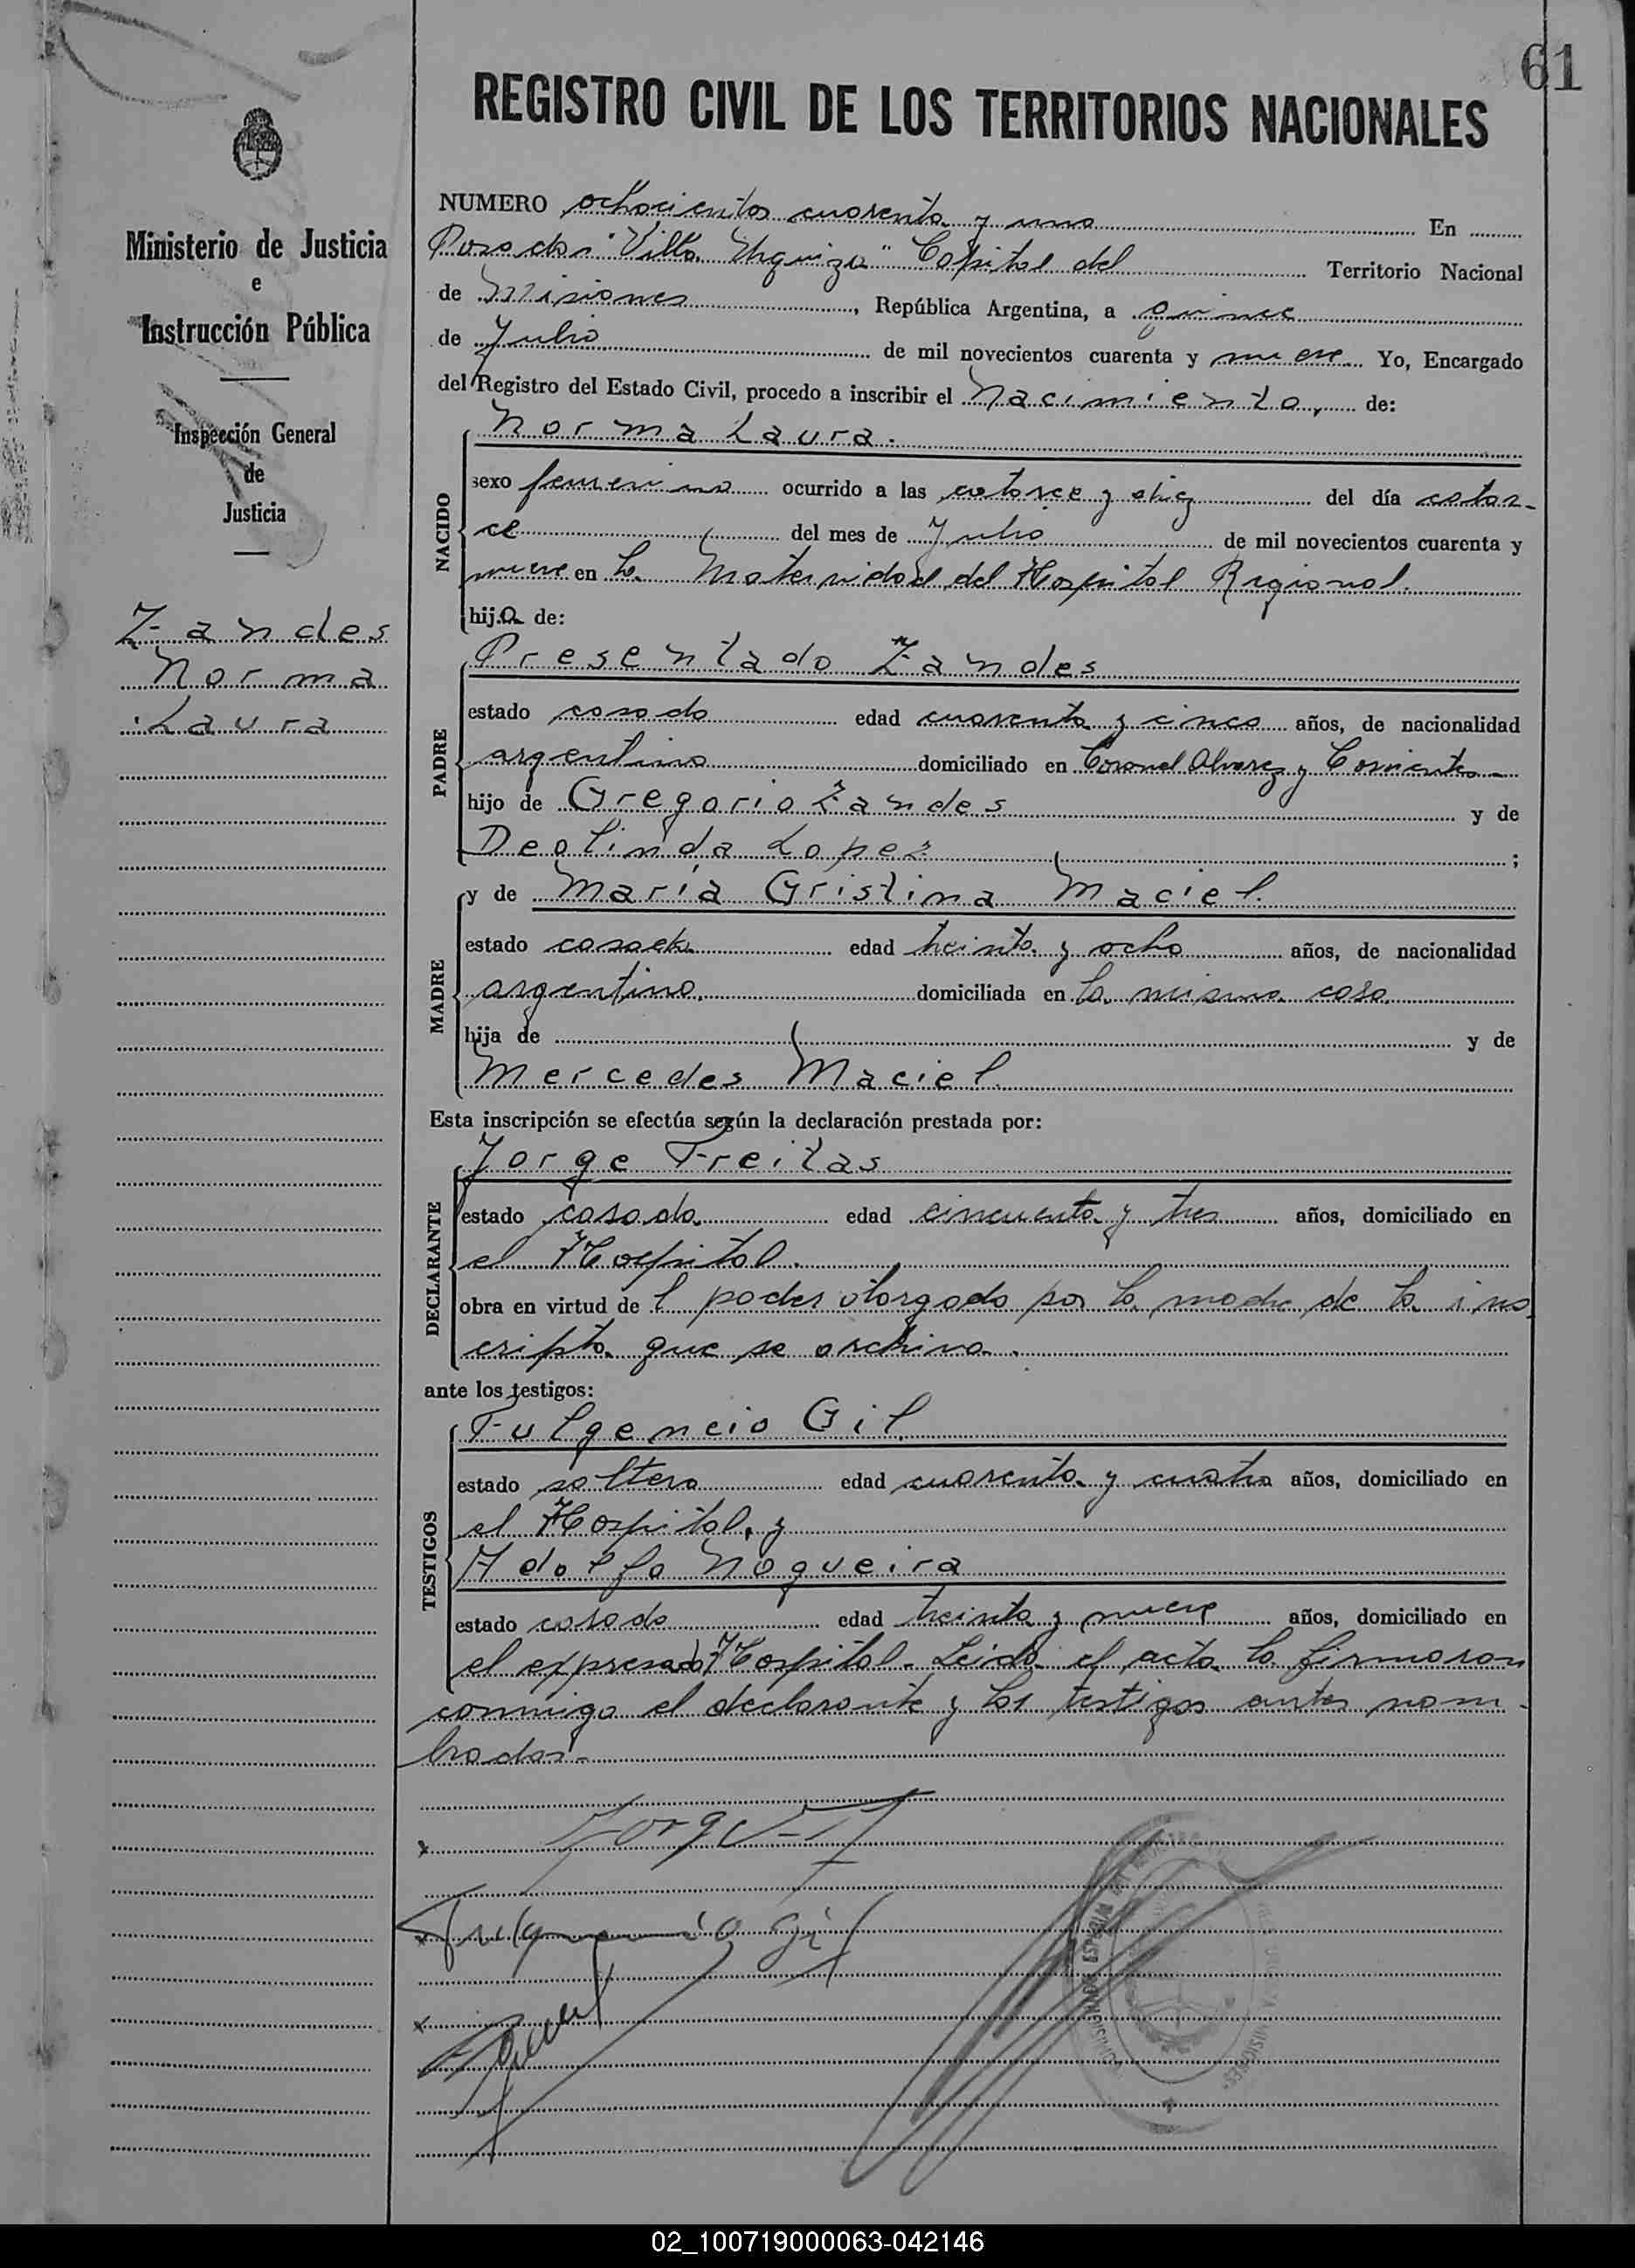 61
REGISTRO CIVIL DE LOS TERRITORIOS NACIONALES
Ministerio de Justicia
e
Instrucción Pública
Inspección General
de
Justicia
Zandes
Norma
Laura
NUMERO ochocientos cuarenta y uno En
Posadas "Villa Urquiza" Capital del Territorio Nacional
de Misiones, República Argentina, a quince
de Julio de mil novecientos cuarenta y nueve Yo, Encargado
del Registro del Estado Civil, procedo a inscribir el Nacimiento, de:
Norma Laura.
NACIDO
sexo femenino ocurrido a las catorce y diez del día cator-
ce del mes de Julio de mil novecientos cuarenta y
nueve en la Maternidad del Hospital Regional.
hija de:
Presentado Zandes
PADRE
estado casado edad cuarenta y cinco años, de nacionalidad
argentino domiciliado en Coronel Alvarez y Corrientes
hijo de Gregorio Zandes y de
Deolinda Lopez ;
y de María Cristina Maciel.
MADRE
estado casada edad treinta y ocho años, de nacionalidad
argentina. domiciliada en la misma casa
hija de y de
Mercedes Maciel.
Esta inscripción se efectúa según la declaración prestada por:
Jorge Freitas
DECLARANTE
estado casado edad cincuenta y tres años, domiciliado en
el Hospital.
obra en virtud de l poder otorgado por la madre de la ins
cripta que se archiva.
ante los testigos:
Fulgencio Gil
TESTIGOS
estado soltero edad cuarenta y cuatro años, domiciliado en
el Hospital, y
Adolfo Nogueira
estado casado edad treinta y nueve años, domiciliado en
el expresado Hospital. Leida el acta la firmaron
conmigo el declarante y los testigos antes nom-
brados.-
Jorge
Fulgencio Gil
MISIONES
02_100719000063-042146